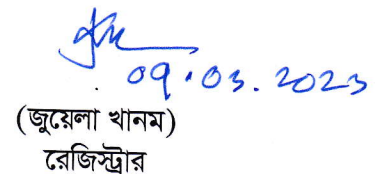 09.03.2023
(জুয়েলা খানম)
রেজিস্ট্রার